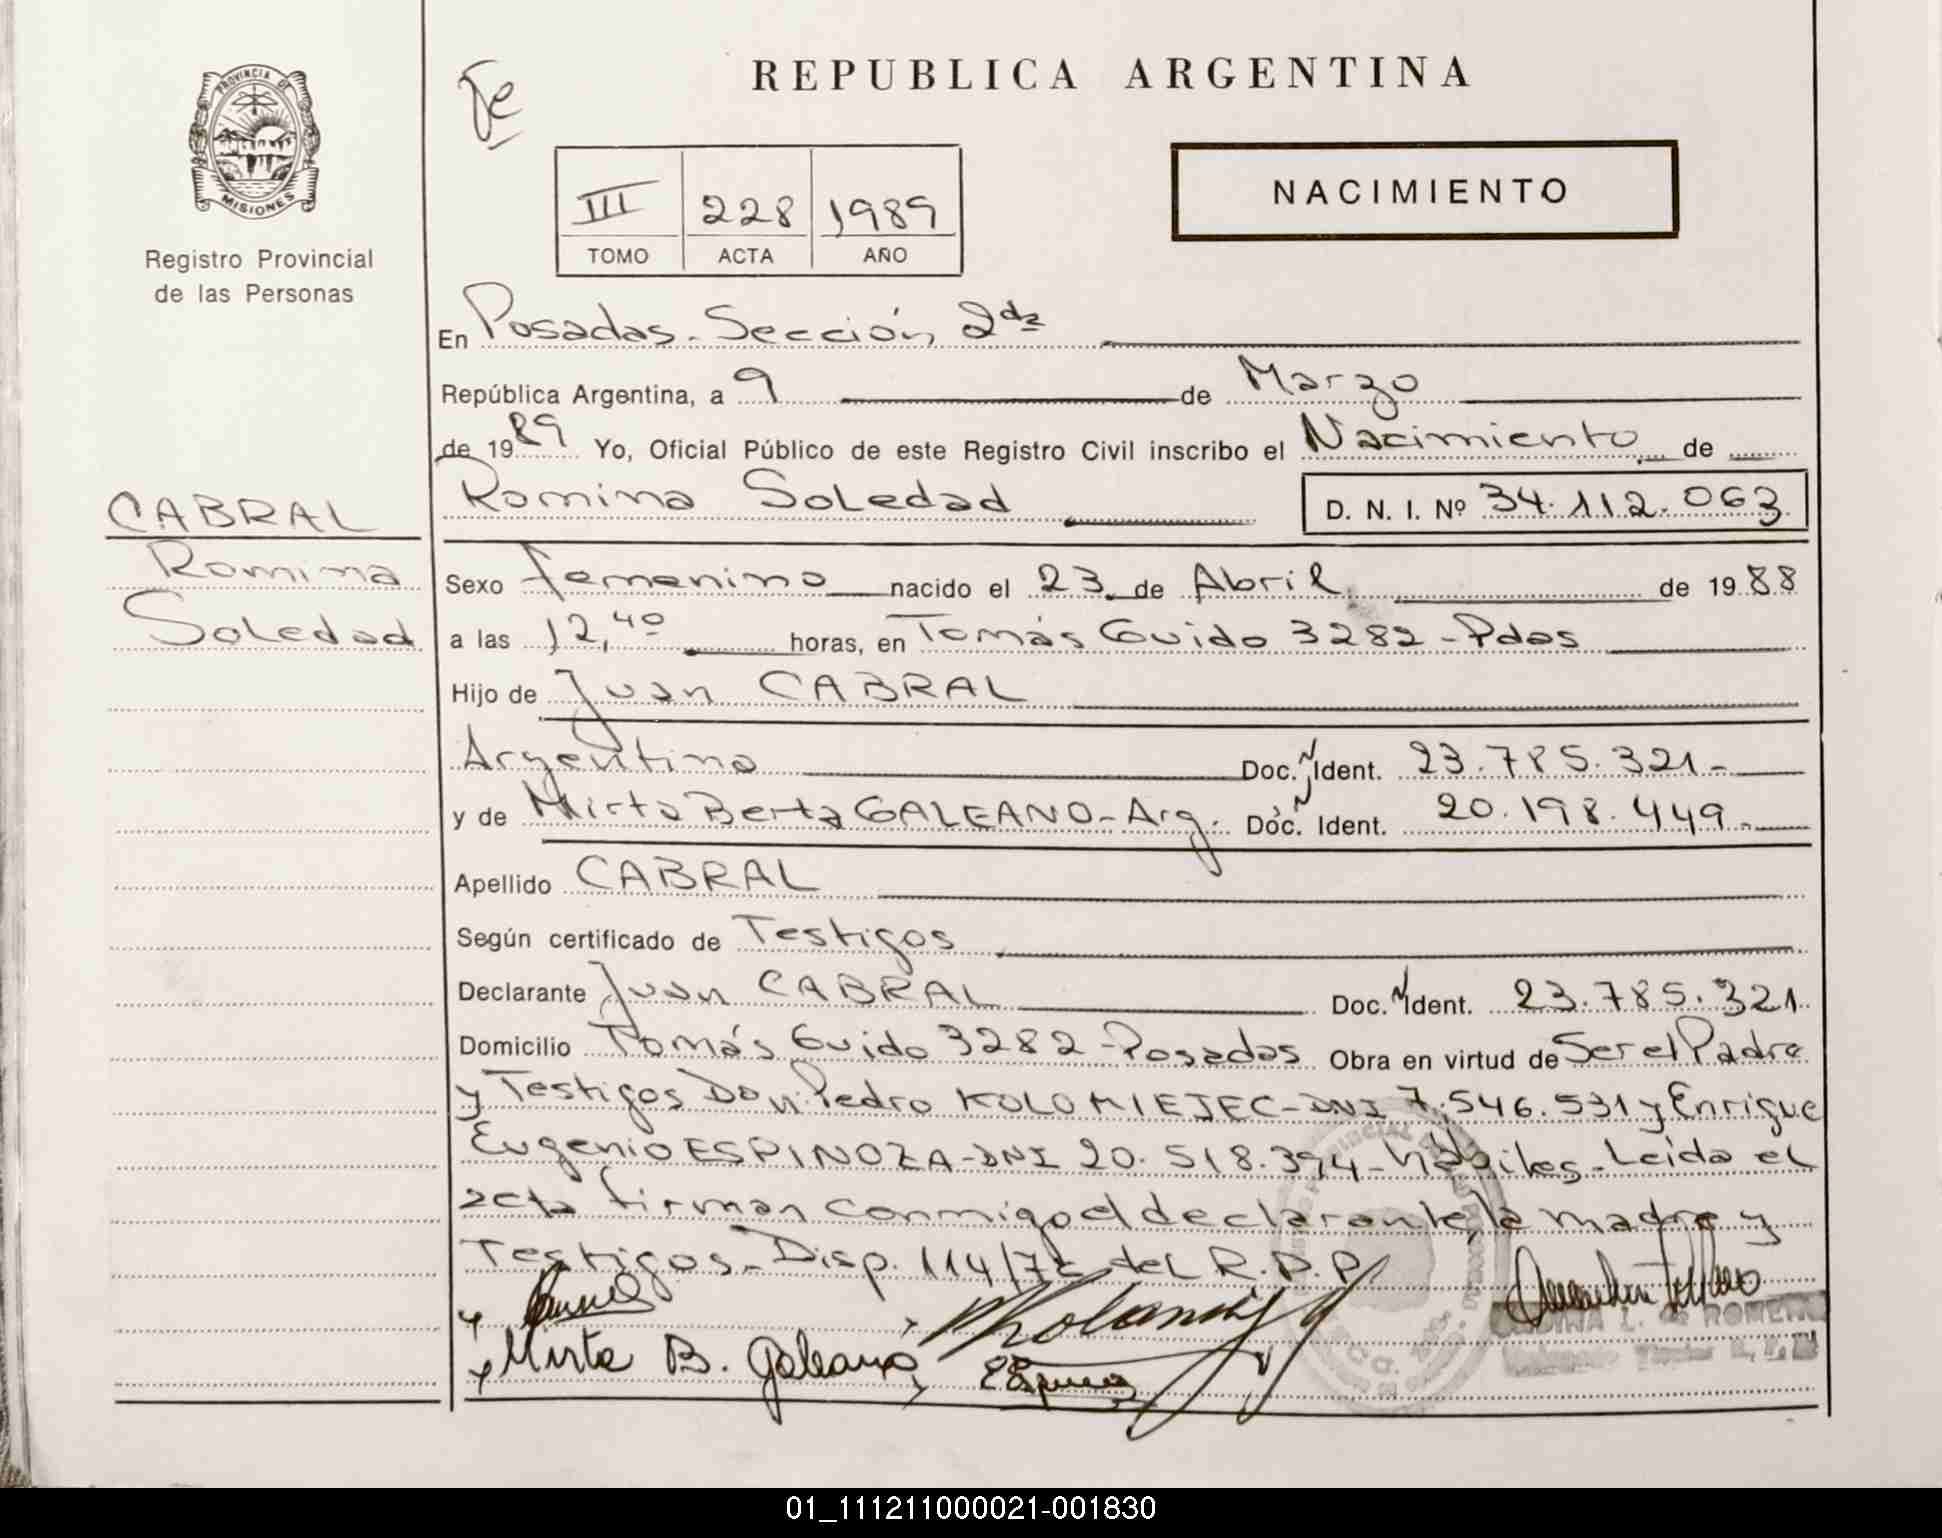 Fe
REPUBLICA ARGENTINA
PROVINCIA DE
MISIONES
NACIMIENTO
III 228 1989
TOMO ACTA AÑO
Registro Provincial
de las Personas
En Posadas. Sección 2da
República Argentina, a 9 de Marzo
de 1989 Yo, Oficial Público de este Registro Civil inscribo el Nacimiento de
Romina Soledad D. N. I. Nº 34.112.063
CABRAL
Romina
Soledad
Sexo Femenino nacido el 23 de Abril de 1988
a las 12,40 horas, en Tomás Guido 3282 - Pdas
Hijo de Juan CABRAL
Argentino Doc. Ident. 23.785.321-
y de Mirta Berta GALEANO - Arg. Doc. Ident. 20.198.449-
Apellido CABRAL
Según certificado de Testigos
Declarante Juan CABRAL Doc. Ident. 23.785.321
Domicilio Tomás Guido 3282 - Posadas Obra en virtud de Ser el Padre
y Testigos Don Pedro KOLOMIEJEC - DNI 7.546.531 y Enrique
Eugenio ESPINOZA - DNI 20.518.394 - hábiles. Leída el
acta firman conmigo el declarante, la madre y
Testigos. Disp. 114/72 del R.P.P.
Mirta B. Galeano
01_111211000021-001830